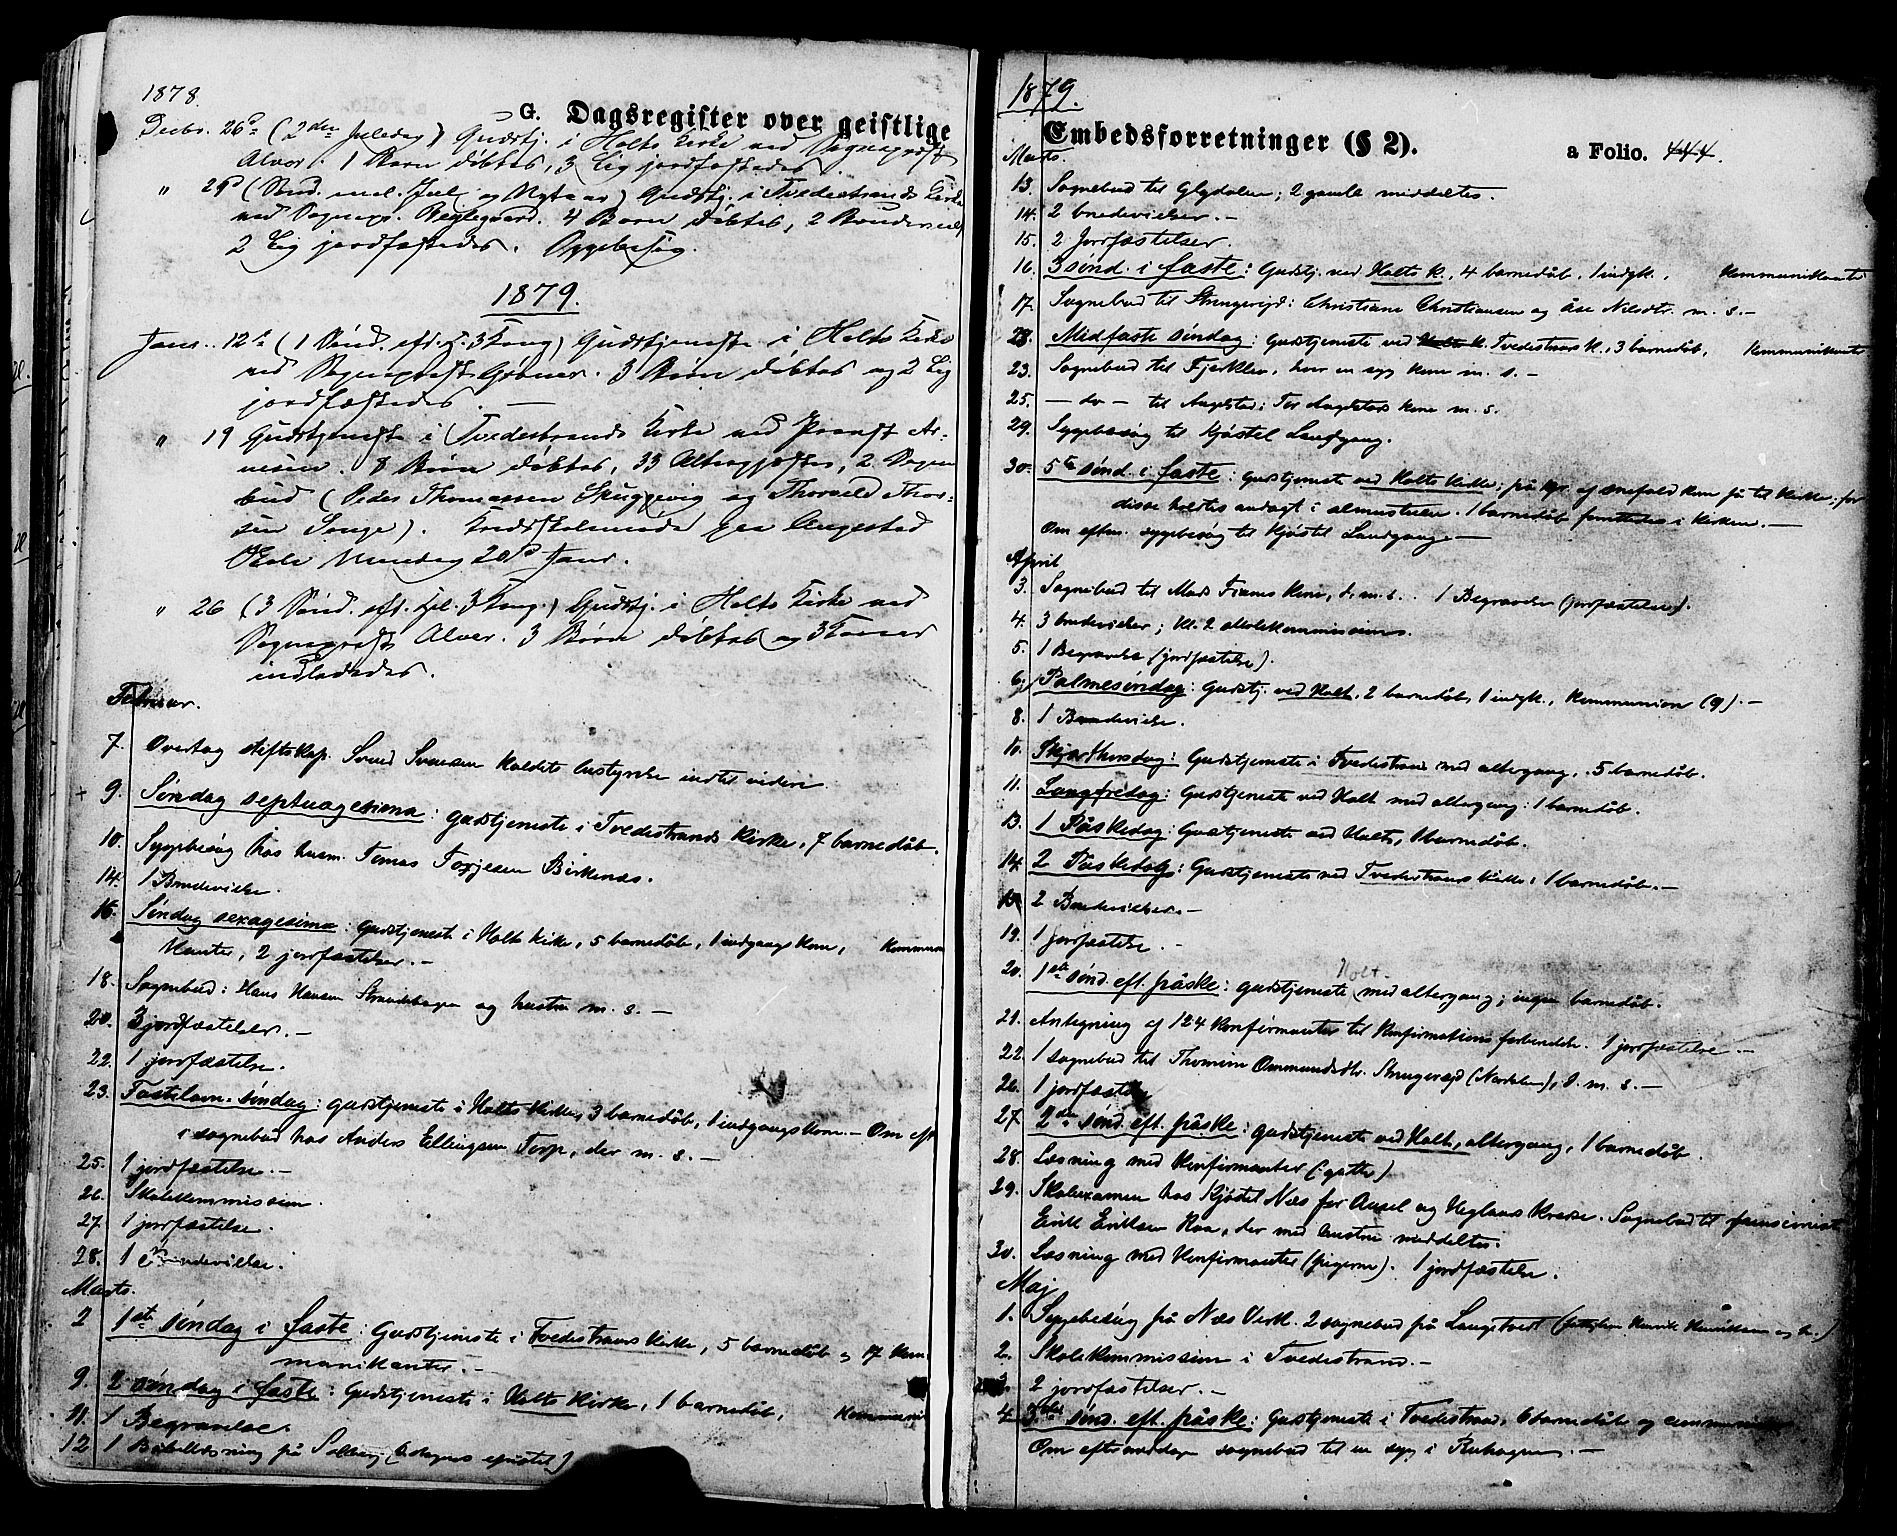 1878.
G. Dagsregister over geistlige
Decbr. 26de (2den Juledag) Gudstj. i Holts Kirke ved Sogneprest
Alver. 1 Barn døbtes, 3 Lig jordfæstedes.
" 29d (Sønd. mel. Juel og Nytaar) Gudstj. i Tvedestrands Kirke
ved Sognepr. 4 Børn døbtes, 2 Brudevielser
2 Lig jordfæstedes. Sygebesøg.
1879.
Janr. 12te (1 Sønd. eft. H. 3 Kong.) Gudstjeneste i Holts Kirke
ved Sogneprest 3 Børn døbtes og 2 Lig
jordfæstedes. —
" 19 Gudstjeneste i Tvedestrands Kirke ved Provst Ar-
nesen. 8 Børn døbtes, 33 Altergjæster, 2 Sogne-
bud (Peder Thomassen og Thorvald Thor-
sen Songe). paa Angelstad
Mandag 20de Janr.
" 26 (3 Sønd. eft. Hel. 3 Kong.) Gudstj. i Holts Kirke ved
Sogneprest Alver. 3 Børn døbtes og 3 Koner
indlededes.
Februar.
7. Overtog stiftskap. Svend Svensen Kaldets bestyrelse indtil videre
9. Søndag septuagesima: gudstjeneste i Tvedestrands Kirke, 7 barnedåb.
10. Sygebesøg hos husm. Tomas Torjesen Birkenes.
14. 1 Brudevielse.
16. Søndag sexagesima: Gudstjeneste i Holts Kirke, 5 barnedåb, 1 indgangskone, Kommuni
kanter, 2 jordfæstelser. —
18. Sognebud: Hans Hansen og hustru m. s. —
20. 3 jordfæstelser. —
22. 1 jordfæstelse.
23. Fastelavn-søndag: gudstjeneste i Holts Kirke, 3 barnedåb, 1 indgangskone. — Om eft
i sognebud hos Anders Ellingsen Torp, der m. s. —
25. 1 jordfæstelse. —
26. Skolekommission.
27. 1 jordfæstelse.
28. 1 brudevielse.
Marts.
2 1ste søndag i faste: Gudstjeneste i Tvedestrands Kirke, 5 barnedåb og 17 kom
munikanter. —
9. 2 søndag i faste: Gudstjeneste i Holts Kirke, 1 barnedåb, Kommuni
11. 1 Begravelse.
12 1 Bibellæsning på Solberg
1879.
Embedsforretninger (§ 2).
a Folio.
Marts.
13. Sognebud til Glydalen; 2 gamle middeltes.
14. 2 brudevielser. —
15. 2 Jordfæstelser.
16. 3 sønd. i faste: Gudstj. ved Holts K., 4 barnedåb, 1 indgk., Kommunikanter
17. Sognebud til Strengereid: Christiane Christiansen og Åse Nilsdtr. m. s. —
23. Midfaste søndag: Gudstjeneste ved Holts K. Tvedestrands K., 3 barnedåb, Kommunikanter
23. Sognebud til Fjerkleiv, hvor en syg kone m. s. —
25. — do — til Angelstad: m. s.
29. Sygebesøg til Kjøstel Landgang.
30. 5te sønd. i faste: Gudstjeneste ved Holts Kirke; på gr. af snefald kom få til kirke; for
disse holdtes andagt i 1 barnedåb forrettedes i kirken. —
Om efterm. sygebesøg til Kjøstel Landgang. —
April
3. Sognebud til Mads kone, d. m. s. 1 Begravelse (jordfæstelse).
4. 3 brudevielser; kl. 2 skolekommission.
5. 1 Begravelse (jordfæstelse).
6. Palmesøndag: Gudstj. ved Holt, 2 barnedåb, 1 indgk., Kommunion (9). —
8. 1 Brudevielse.
10. Skjærthorsdag: Gudstjeneste i Tvedestrand med altergang, 5 barnedåb.
11. Langfredag: Gudstjeneste ved Holt med altergang: 1 barnedåb.
13. 1 Påskedag: Gudstjeneste ved Holt, 1 barnedåb.
14. 2 Påskedag: Gudstjeneste ved Tvedestrands Kirke: 1 barnedåb. —
2 Brudevielser. —
19. 1 jordfæstelse. —
20. 1ste sønd. eft. påske: gudstjeneste Holt med altergang; ingen barnedåb.
21. Antegning af 124 Konfirmanter til Konfirmationsforberedelse. 1 jordfæstelse —
22. 1 sognebud til Thomine Ommundsdtr. Strengereid d. m. s. —
26. 1 jordfæstelse
27. 2den sønd. eft. påske: gudstjeneste ved Holt, altergang, 1 barnedåb.
28. Læsning med Konfirmanter (gutter)
29. Skolexamen hos Kjøstel Næs for og Heglands Kreds. Sognebud til
Erik Eriksen Raa, der med hustru middeltes.
30. Læsning med Konfirmanter (pigerne). 1 jordfæstelse.
Maj
1. Sygebesøg på Næs Verk. 2 sognebud på Langtvedt
2. Skolekommission i Tvedestrand. —
3. 2 jordfæstelser. —
4. 3die sønd. eft. påske: Gudstjeneste i Tvedestrand, 6 barnedåb og
Om eftermiddagen sognebud til en syg i —